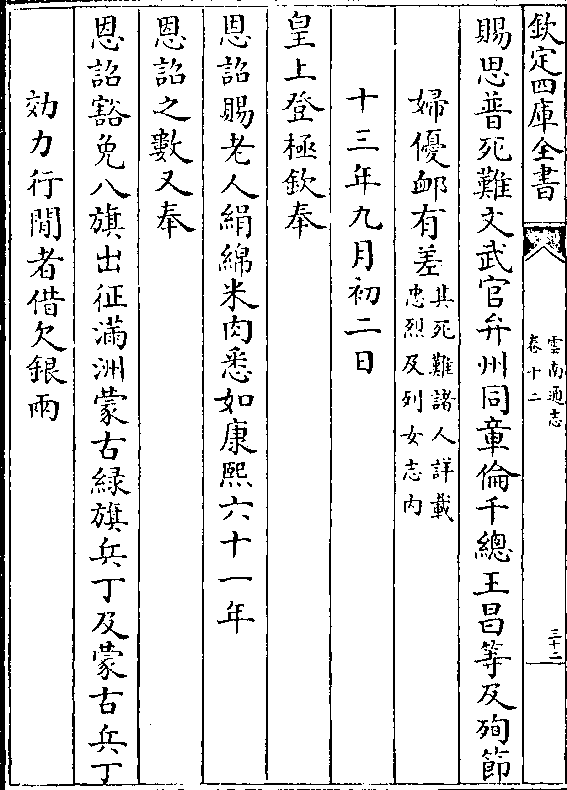 欽定四庫全書
雲南通志
卷十二
三十二
賜恩普死難文武官弁州同章倫千總王昌等及殉節
婦優䘏有差其死難諸人詳載
忠烈及列女志内
十三年九月初二日
皇上登極欽奉
恩詔賜老人絹綿米肉悉如康熙六十一年
恩詔之數又奉
恩詔豁免八旗出征滿洲蒙古緑旗兵丁及蒙古兵丁
効力行間者借欠銀兩